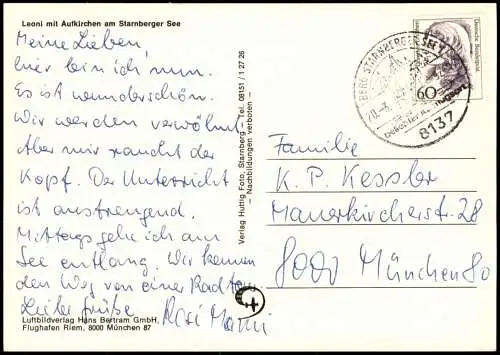 Leoni mit Aufkirchen am Starnberger See
Meine Lieben,
hier bin ich nun.
Es ist wunderschön.
Wir werden verwöhnt
Aber mir raucht der
Kopf. Der Unterricht
ist anstrengend.
Mittags gehe ich am
See entlang. Wir kennen
den Weg von einer Radtour.
Liebe Grüße
Luftbildverlag Hans Bertram GmbH,
Flughafen Riem, 8000 München 87
Verlag Huttig Foto, Starnberg – Tel. 08151 / 1 27 26
– Nachbildungen verboten –
BERG, STARNBERGER SEE
8137
Deutsche Bundespost
60
Familie
K. P. Kessler
Mauerkircherstr. 28
8000 München 80